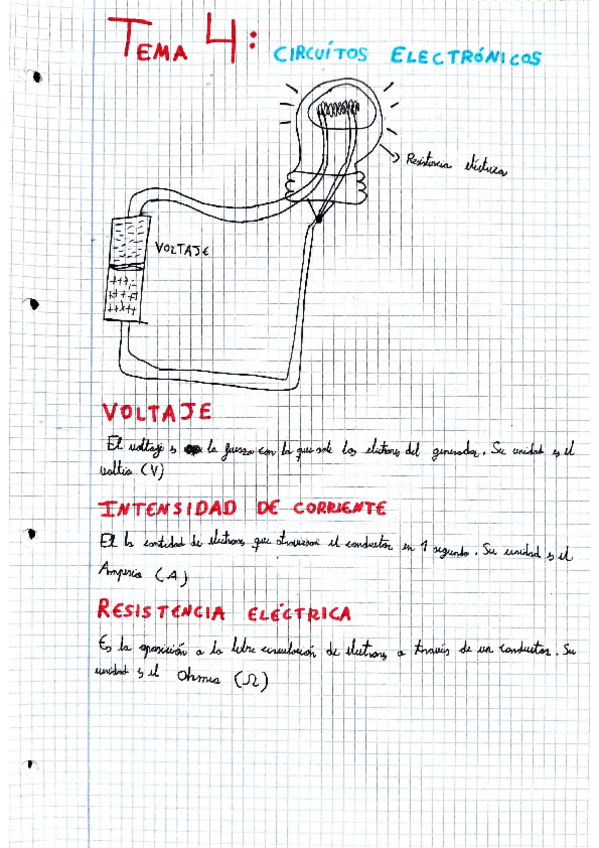 TEMA 4: CIRCUÍTOS ELECTRÓNICOS
Resistencia eléctrica
VOLTAJE
VOLTAJE
El voltaje es la fuerza con la que sale los electrones del generador. Su unidad es el
voltio (V)
INTENSIDAD DE CORRIENTE
El la cantidad de electrons que atraviesan el conductor en 1 segundo. Su unidad es el
Amperio (A)
RESISTENCIA ELÉCTRICA
Es la oposición a la libre circulación de electrons a través de un conductor. Su
unidad es el Ohmio (Ω)